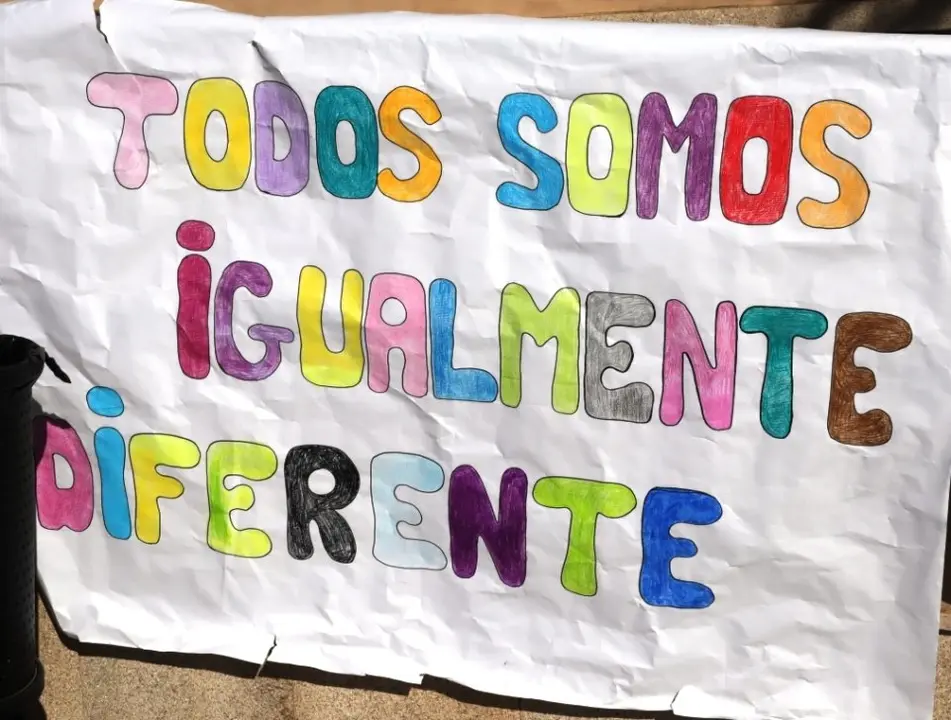 TODOS SOMOS
iGUALMENTE
DiFERENTE